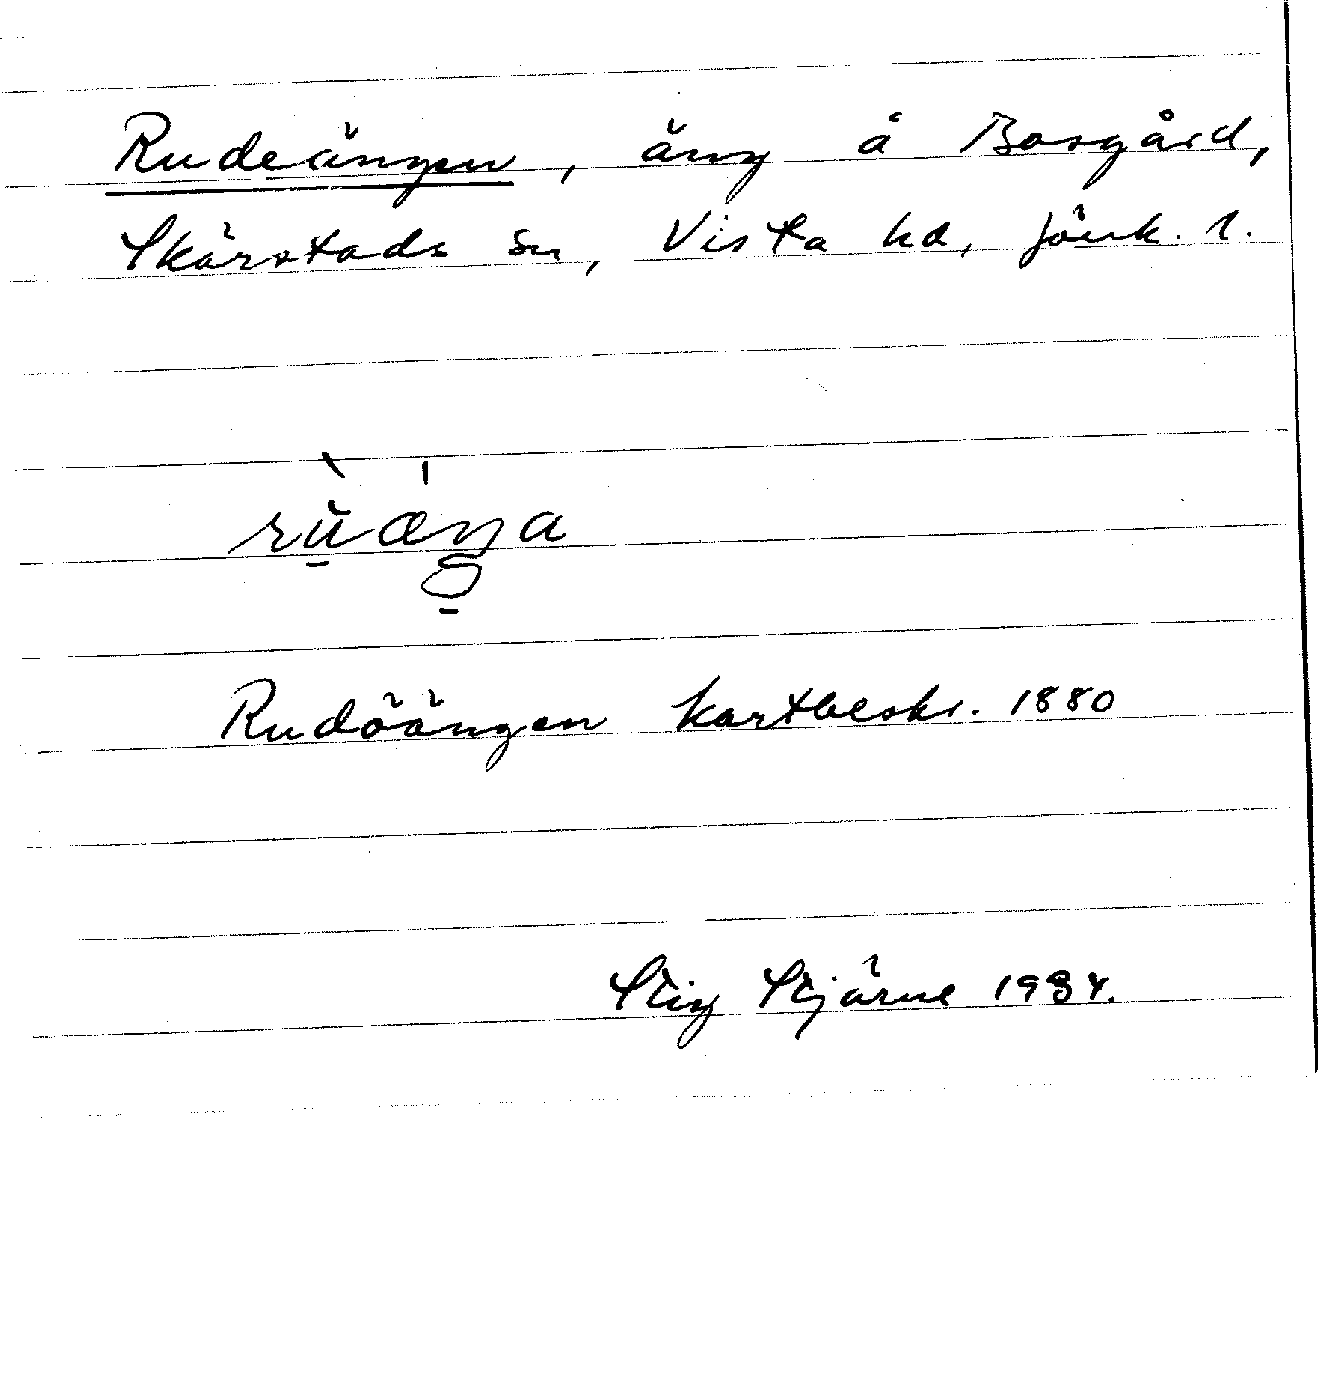 Rudeängen, äng å Bosgård,
Skärstads sn, Vista hd, Jönk. l.
rùæŋa
Rudöängen kartbeskr. 1880
Stig Stjärne 1934.